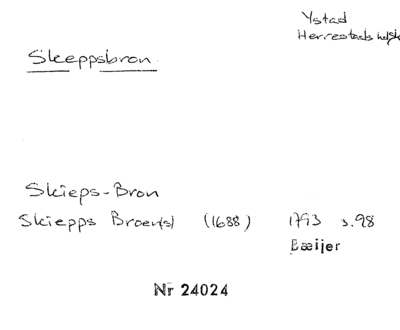 Ystad
Herrestads
Skeppsbron
Skieps-Bron
Skiepps (1688) 1793 s.98
Bæijer
Nr 24024